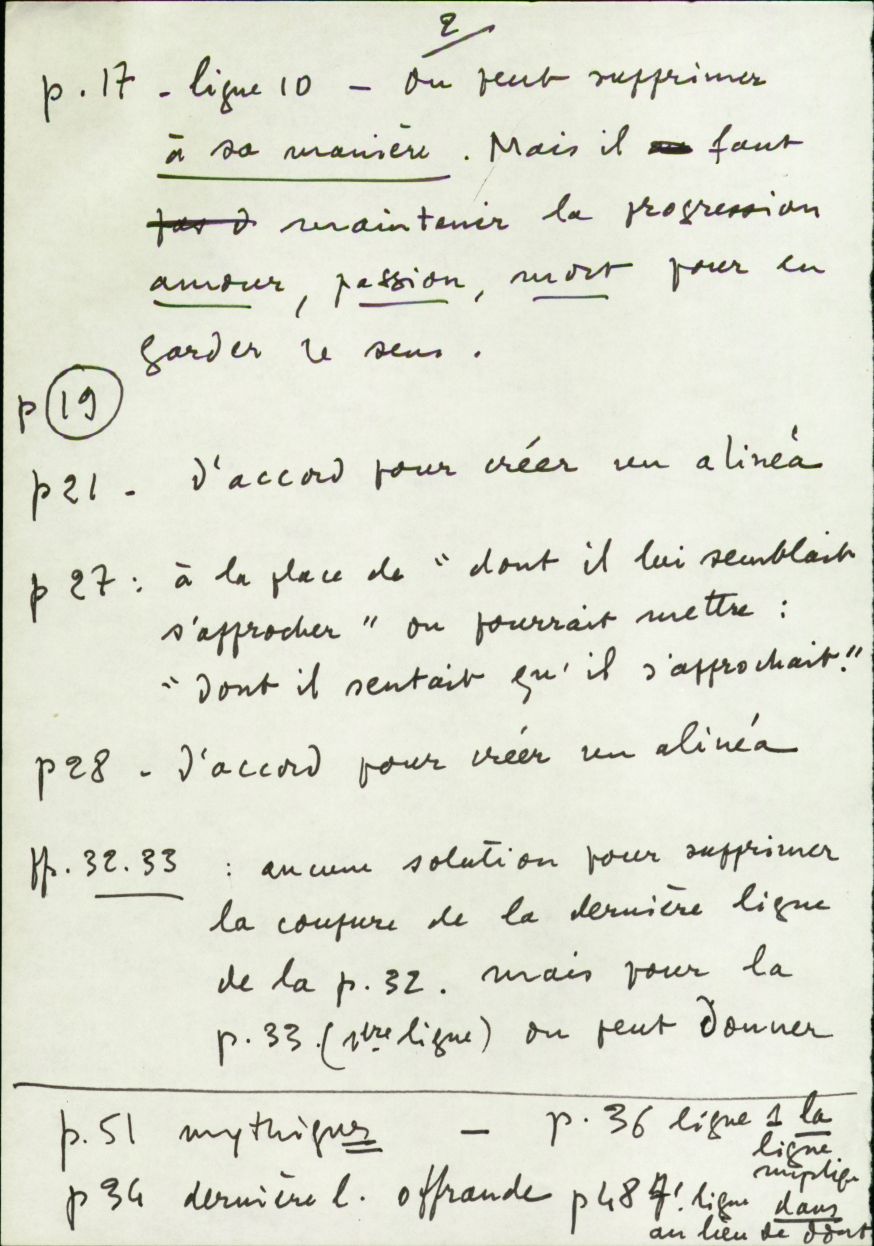 2
p. 17 - ligne 10 - On peut supprimer
à sa manière. Mais il faut
maintenir la progression
amour, passion, mort pour en
garder le sens.
p 19
p 21 - d'accord pour créer un alinéa
p 27 : à la place de "dont il lui semblait
s'approcher" on pourrait mettre :
"dont il sentait qu'il s'approchait."
p 28 - d'accord pour créer un alinéa
pp. 32.33 : aucune solution pour supprimer
la coupure de la dernière ligne
de la p. 32. mais pour la
p. 33. (1ère ligne) on peut donner
p. 51 mythiques - p. 36 ligne 1 la
ligne
p 34 dernière l. offrande p 48 ligne dans
au lieu de dont